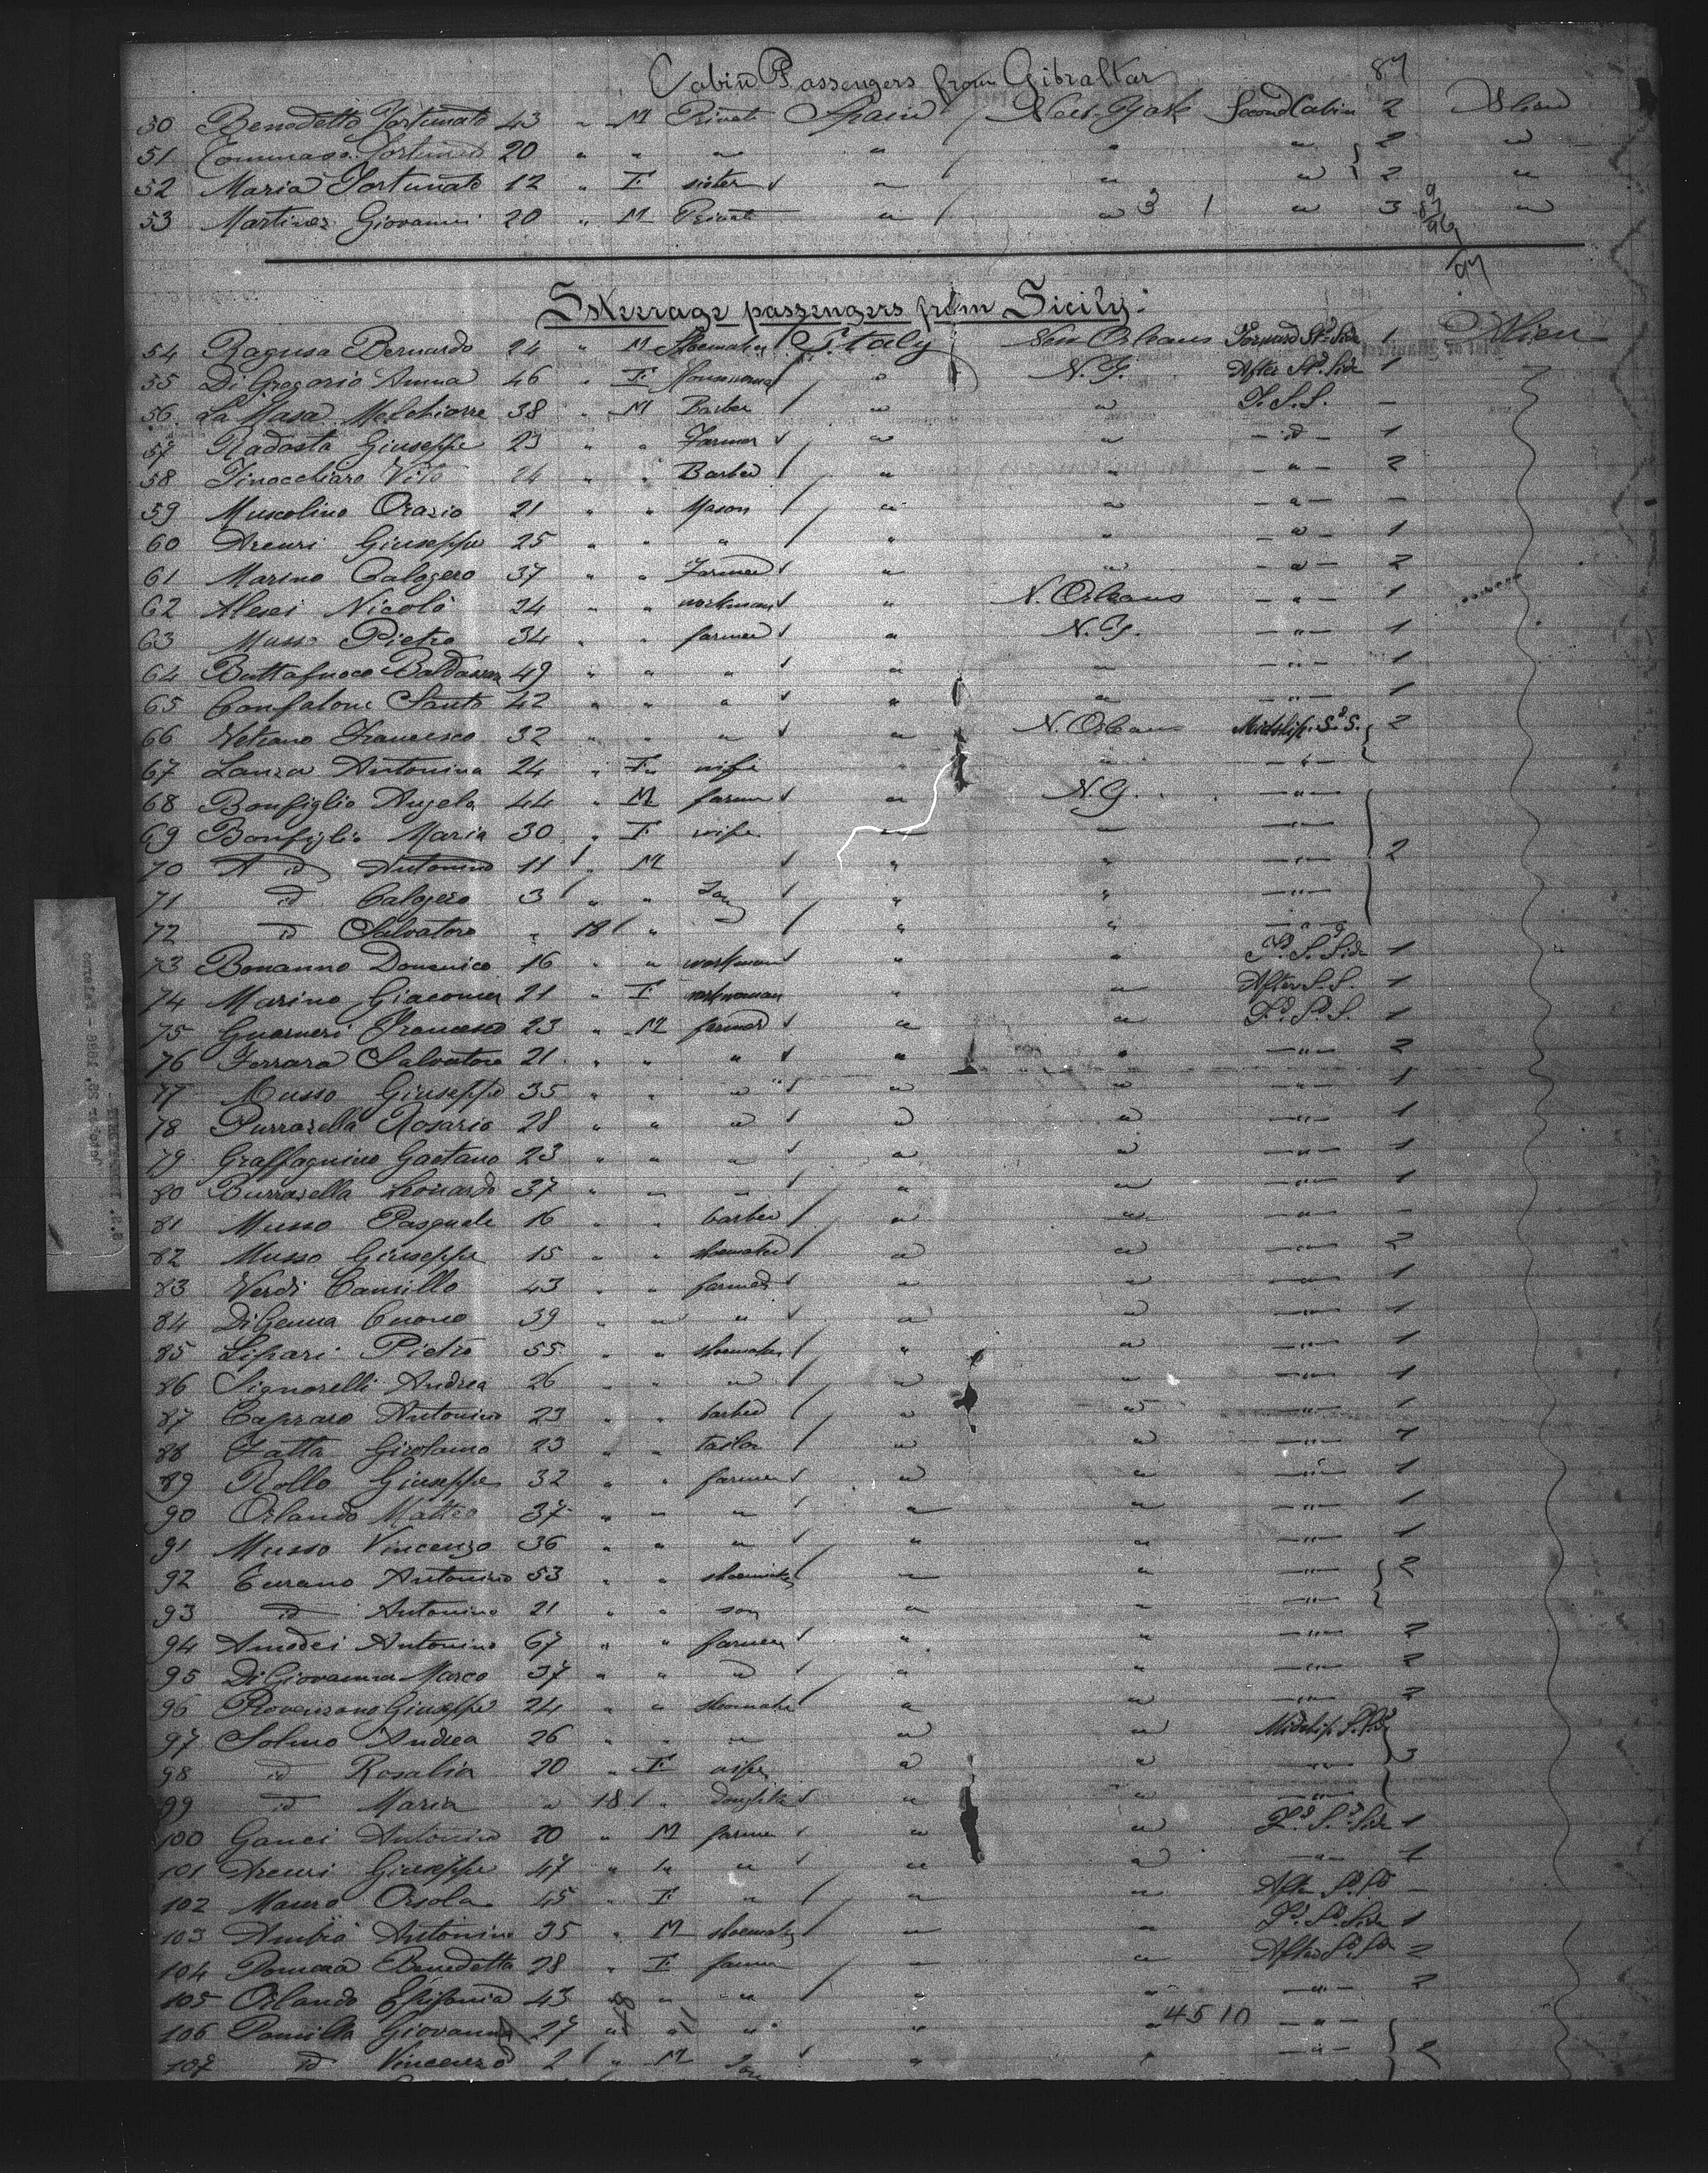 Cabin Passengers from Gibraltar 87
50 Benedetto Fortunato 43 " M Private Spain New-York Second Cabin 2 Alien
51 Tommaso Fortunato 20 " " " " " " 2 "
52 Maria Fortunato 12 " F sister " " " 2 "
53 Martinez Giovanni 20 " M Private " " 3 1 " 3 "
97
Steerage passengers from Sicily:
54 Ragusa Bernardo 24 " M Shoemaker Italy New Orleans Forward St. Side 1 Alien
55 Di Gregorio Anna 46 " F " N.Y. After St. Side 1
56 La Masa Melchiorre 38 " M Barber " " F.S.S. -
57 Radosta Giuseppe 23 " " Farmer " " - id - 1
58 Finocchiaro Vito 24 " " Barber " " - " - 2
59 Muscolino Orazio 21 " " Mason " " - " - -
60 Arcuri Giuseppe 25 " " " " " - " - 1
61 Marino Calogero 37 " " Farmer " " - " - 2
62 Alessi Nicolò 24 " " workman " N. Orleans - " - 1
63 Musso Pietro 34 " " farmer " N.Y. - " - 1
64 Buttafuoco Baldassare 49 " " " " " - " - 1
65 Confalone Santo 42 " " " " " - " - 1
66 Vetrano Francesco 32 " " " " N. Orleans Midship. S. S. 2
67 Lanza Antonina 24 " F wife " " - " -
68 Bonfiglio Angelo 44 " M farmer " N.Y. - " -
69 Bonfiglio Maria 30 " F wife " " - " -
70 id Antonino 11 " M " " - " - 2
71 id Calogero 3 " " Son " " - " -
72 id Salvatore " 18 " " " - " -
73 Bonanno Domenico 16 " " workman " " Fd. S. Side 1
74 Marino Giacoma 21 " F workwoman " " After S.S. 1
75 Guarneri Francesco 23 " M farmer " " Fd. Sd. S. 1
76 Ferrara Salvatore 21 " " " " " - " - 2
77 Musso Giuseppe 35 " " " " " - " - 1
78 Purrazella Rosario 28 " " " " " - " - 1
79 Graffagnino Gaetano 23 " " " " " - " - 1
80 Burrazella Leonardo 37 " " " " " - " - 1
81 Musso Pasquale 16 " " barber " " - " - -
82 Musso Giuseppe 15 " " shoemaker " " - " - 2
83 Verdi Camillo 43 " " farmer " " - " - 1
84 Di Genua Cuono 39 " " " " " - " - 1
85 Lipari Pietro 55 " " shoemaker " " - " - 1
86 Signorelli Andrea 26 " " " " " - " - 1
87 Capraro Antonino 23 " " barber " " - " - 1
88 Fatta Girolamo 23 " " tailor " " - " - 1
89 Rollo Giuseppe 32 " " farmer " " - " - 1
90 Orlando Matteo 37 " " " " " - " - 1
91 Musso Vincenzo 36 " " " " " - " - 1
92 Turano Antonino 53 " " shoemaker " " - " - 2
93 id Antonino 21 " " son " " - " -
94 Amodei Antonino 67 " " farmer " " - " - 2
95 Di Giovanna Marco 37 " " " " " - " - 2
96 Provenzano Giuseppe 24 " " shoemaker " " - " - 2
97 Salmo Andrea 26 " " " " " Midship. S. Sd
98 id Rosalia 20 " F wife " " - " - 3
99 id Maria " 18 " daughter " " - " -
100 Ganci Antonino 20 " M farmer " " Fd. Sd. Side 1
101 Arcuri Giuseppe 47 " " " " " - " - 1
102 Mauro Orsola 45 " F " " " After Sd. Sd -
103 Ambrò Antonino 35 " M shoemaker " " Fd. Sd. Side 1
104 Benedetta 28 " F farmer " " After Sd. Sd 2
105 Orlando Epifania 43 " " " " " - " - 2
106 Pomilla Giovanna 27 " " " " " 45 10 - " -
107 id Vincenzo 2 " M Son " " - " - 2